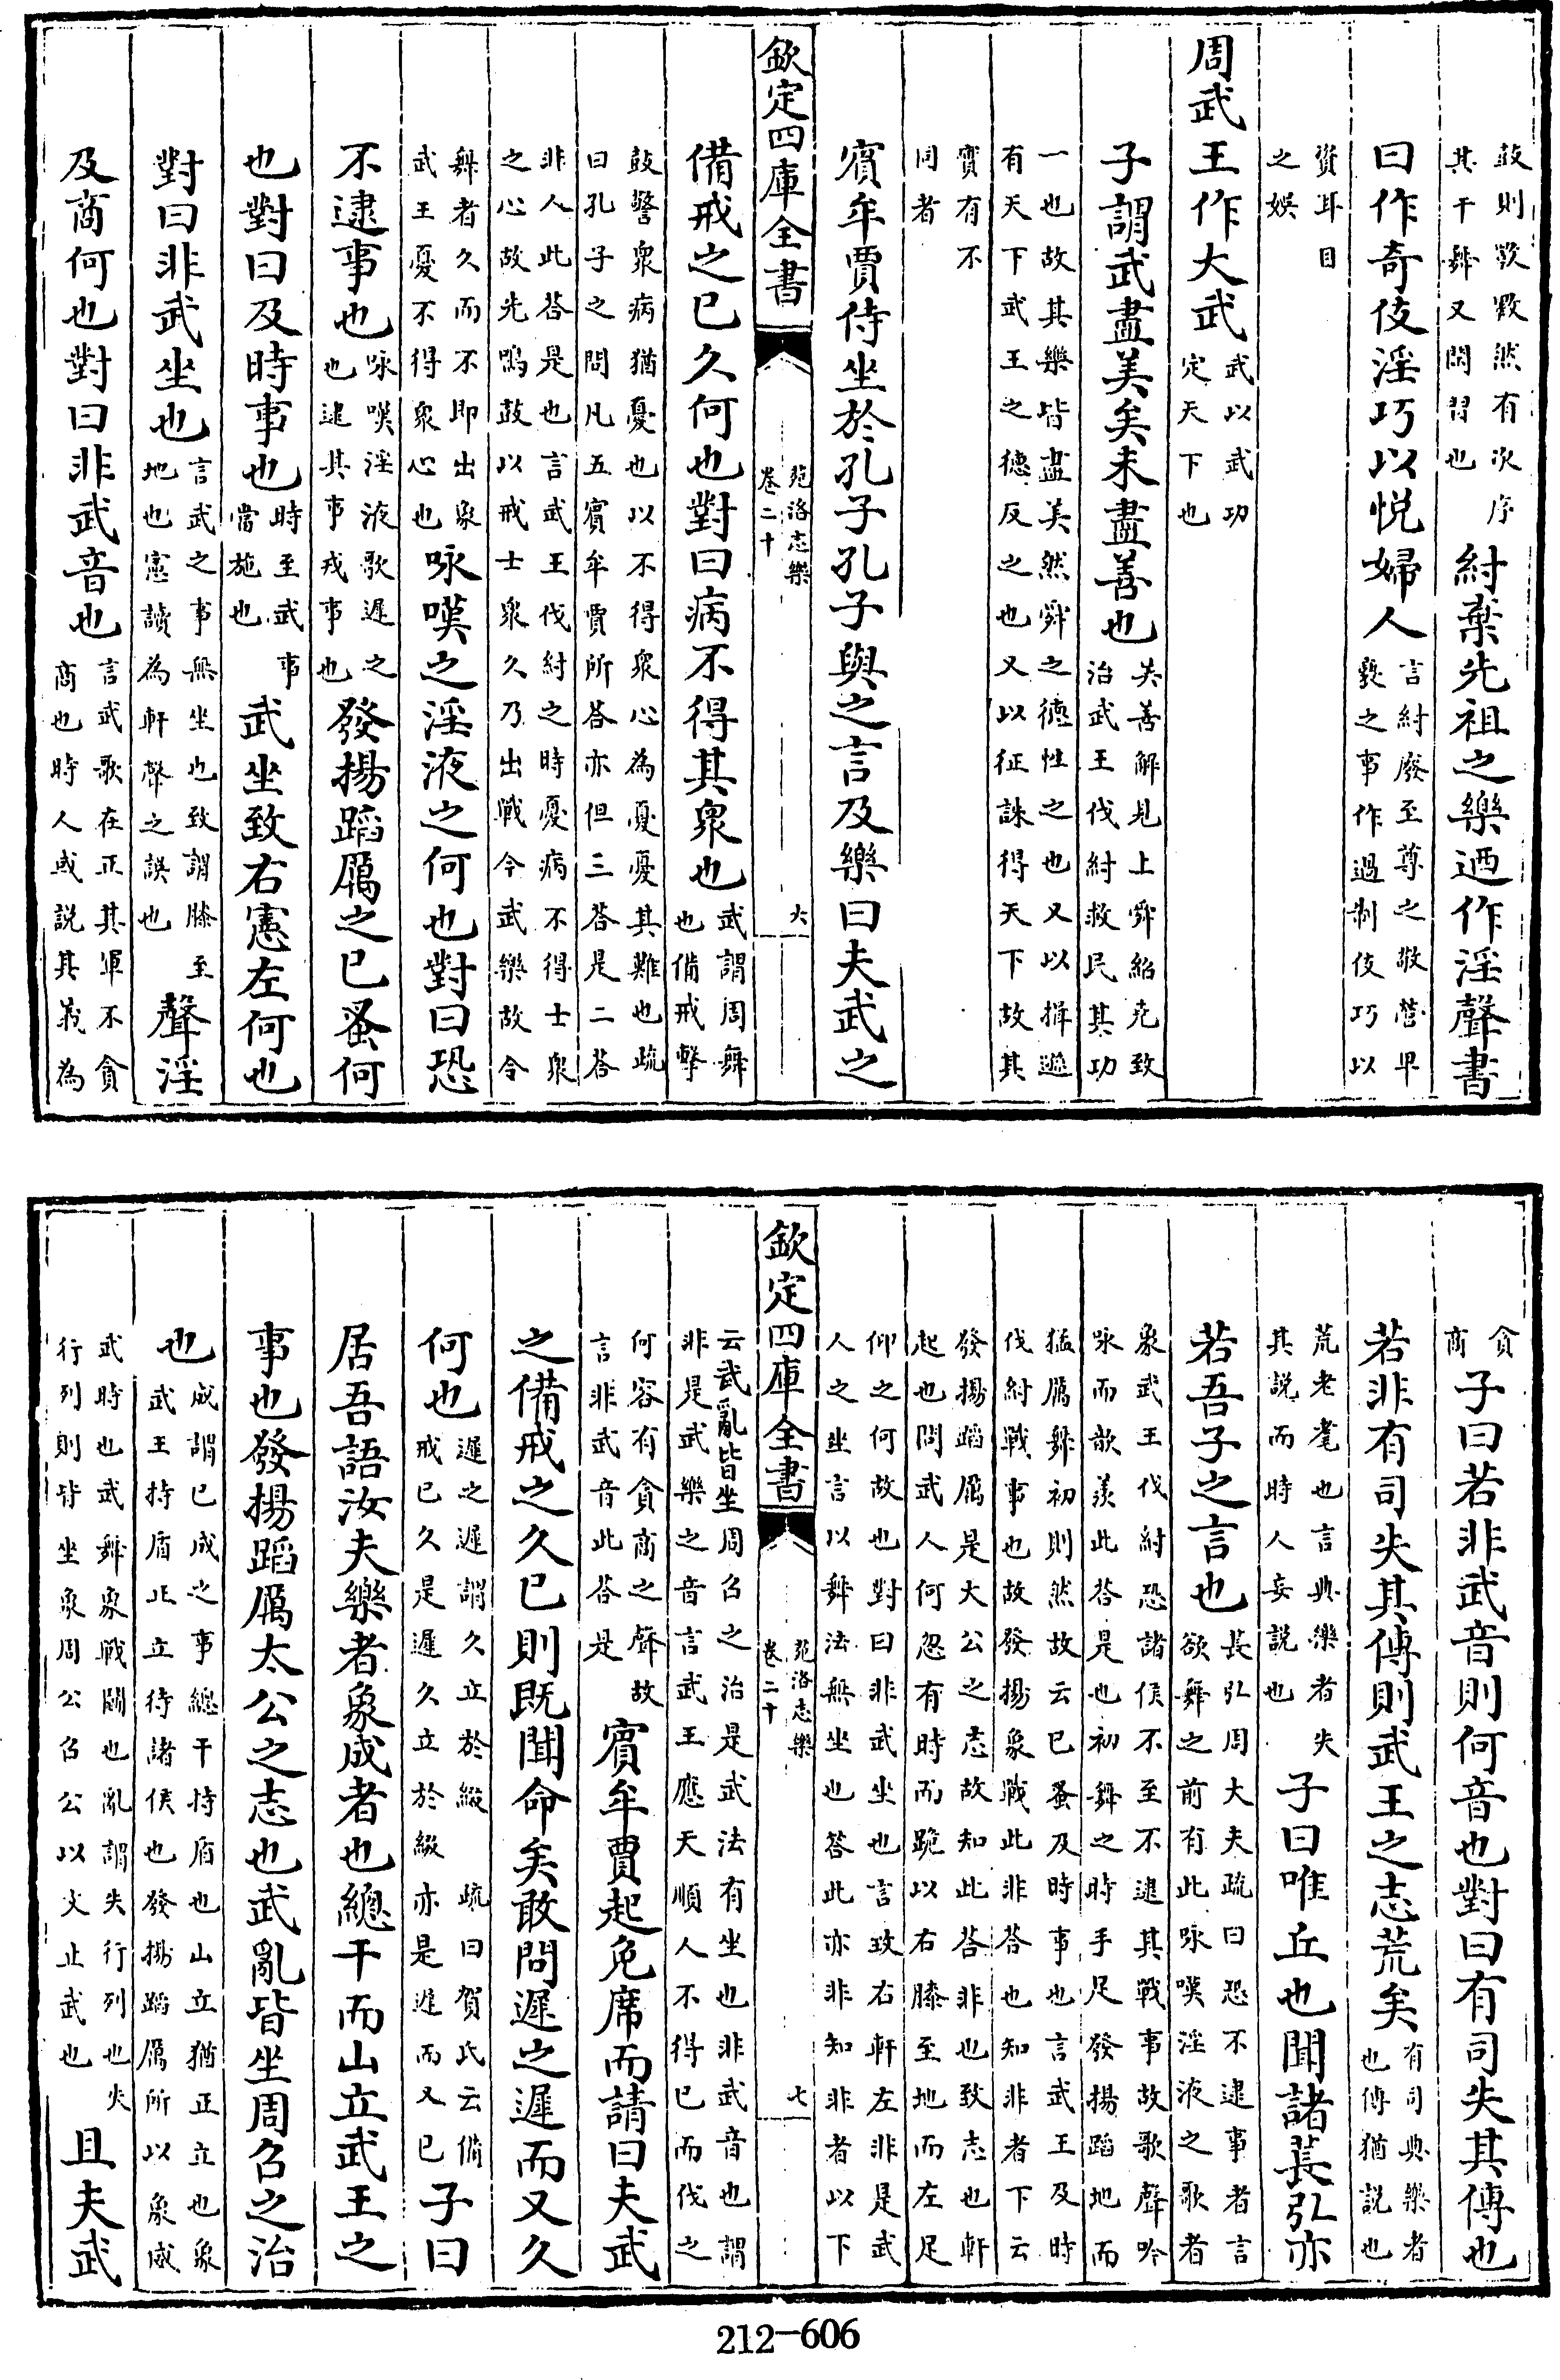 鼓則斁斁然有次序其干舞又閑習也紂棄先祖之樂迺作淫聲書
曰作奇伎淫巧以悦婦人言紂廢至尊之敬營卑褻之事作過制伎巧以
資耳目之娛
周武王作大武武以武功定天下也
子謂武盡美矣未盡善也美善解見上舜紹堯致治武王伐紂救民其功
一也故其樂皆盡美然舜之德性之也又以揖遜有天下武王之德反之也又以征誅得天下故其
實有不同者
賓牟賈侍坐於孔子孔子與之言及樂曰夫武之
欽定四庫全書 苑洛志樂 卷二十 六
備戒之已久何也對曰病不得其衆也武謂周舞也備戒擊
鼓警衆病猶憂也以不得衆心為憂憂其難也疏曰孔子之問凡五賓牟賈所答亦但三答是二答
非人此答是也言武王伐紂之時憂病不得士衆之心故先鳴鼓以戒士衆久乃出戰今武樂故令
舞者久而不即出象武王憂不得衆心也咏嘆之淫液之何也對曰恐
不逮事也咏嘆淫液歌遲之也逮其事戎事也發揚蹈厲之已蚤何
也對曰及時事也時至武事當施也武坐致右憲左何也
對曰非武坐也言武之事無坐也致謂膝至地也憲讀為軒聲之誤也聲淫
及商何也對曰非武音也言武歌在正其軍不貪商也時人或説其義為
貪商子曰若非武音則何音也對曰有司失其傳也
若非有司失其傳則武王之志荒矣有司典樂者也傳猶説也
荒老耄也言典樂者失其説而時人妄説也子曰唯丘也聞諸萇弘亦
若吾子之言也萇弘周大夫疏曰恐不逮事者言欲舞之前有此咏嘆淫液之歌者
象武王伐紂恐諸侯不至不逮其戰事故歌聲吟咏而歆羨此答是也初舞之時手足發揚蹈地而
猛厲舞初則然故云已蚤及時事也言武王及時伐紂戰事也故發揚象戰此非答也知非者下云
發揚蹈厲是大公之志故知此答非也致志也軒起也問武人何忽有時而跪以右膝至地而左足
仰之何故也對曰非武坐也言致右軒左非是武人之坐言以舞法無坐也答此亦非知非者以下
欽定四庫全書 苑洛志樂 卷二十 七
云武亂皆坐周召之治是武法有坐也非武音也謂非是武樂之音言武王應天順人不得已而伐之
何容有貪商之聲故言非武音此答是賓牟賈起免席而請曰夫武
之備戒之久已則既聞命矣敢問遲之遲而又久
何也遲之遲謂久立於綴戒已久是遲久立於綴疏曰賀氏云備亦是遲而又已子曰
居吾語汝夫樂者象成者也總干而山立武王之
事也發揚蹈厲太公之志也武亂皆坐周召之治
也成謂已成之事總干持盾也山立猶正立也象武王持盾正立待諸侯也發揚蹈厲所以象威
武時也武舞象戰鬬也亂謂失行列也失行列則皆坐象周公召公以文止武也且夫武
212-606